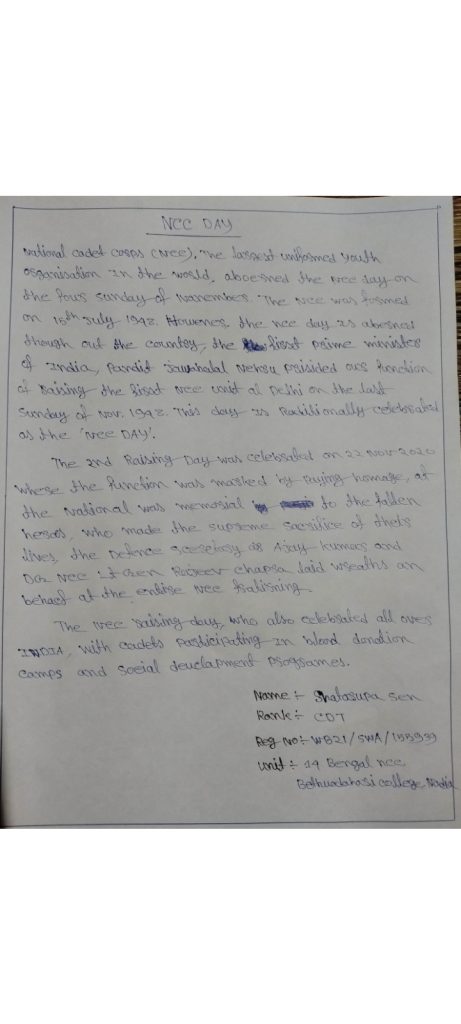 NCC DAY
National cadet corps (NCC), The largest uniformed youth
organisation in the world, aboesned the NCC day on
the four sunday of November. The NCC was formed
on 15th July 1948. However, the ncc day is abesned
though out the country, the first prime minister
of India, Pandit Jawahalal Nehru prisided over function
of raising the first NCC unit at Delhi on the last
Sunday of Nov. 1948. This day is celebrated
as the 'NCC DAY'.
The 2nd Raising Day was celebrated on 22 Nov 2020
where the function was marked by paying homage, at
the National war memorial to the fallen
heroes, who made the supreme sacrifice of their
lives, the Defence Ajay kumar and
NCC Lt Gen Rajeev chapra laid wreaths on
behaef of the entire NCC
The NCC raising day, who also celebrated all over
INDIA, with cadets participating in blood donation
camps and social programes.
Name :- Sen
Rank :- CDT
Reg No :- WB21/SWA/
Unit :- 14 Bengal ncc
college, Nadia